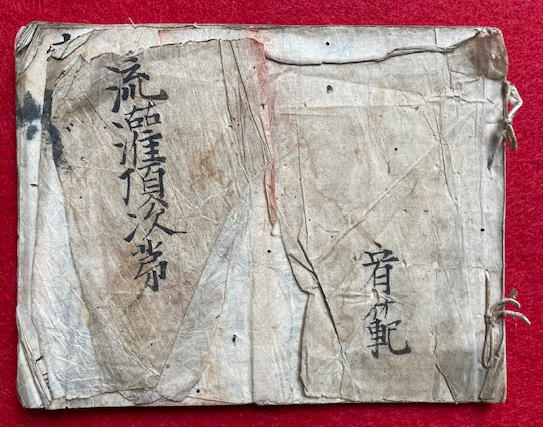 流灌頂次第
音範